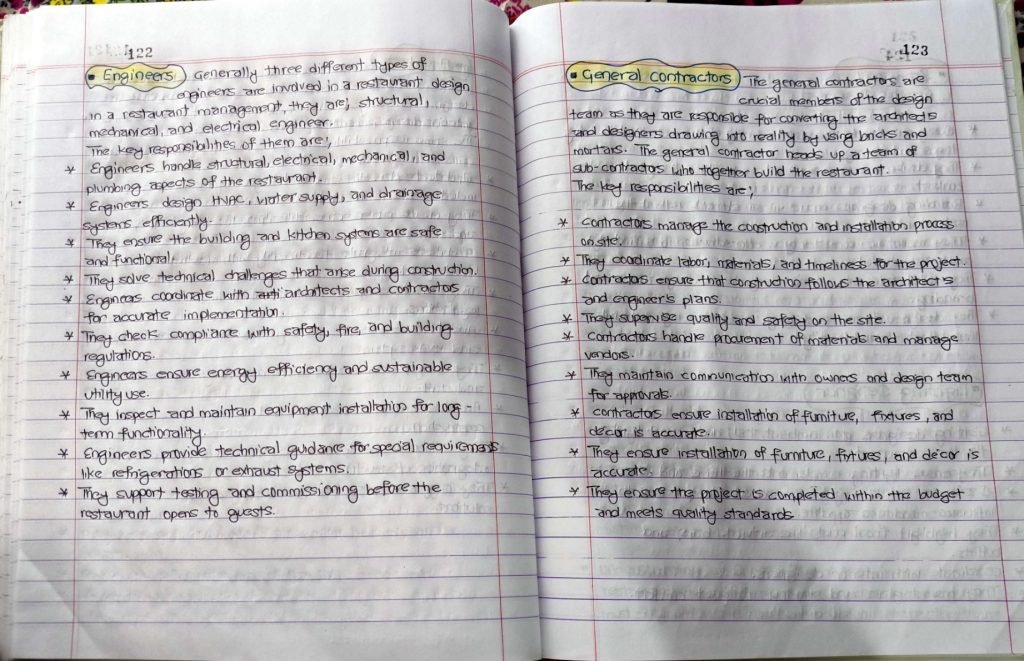 122
• Engineers Generally three different types of
engineers are involved in a restaurant design
in a restaurant management, they are; structural,
mechanical, and electrical engineer.
The key responsibilities of them are;
* Engineers handle structural, electrical, mechanical, and
plumbing aspects of the restaurant.
* Engineers design HVAC, water supply, and drainage
systems efficiently.
* They ensure the building and kitchen systems are safe
and functional.
* They solve technical challenges that arise during construction.
* Engineers coordinate with architects and contractors
for accurate implementation.
* They check compliance with safety, fire, and building
regulations.
* Engineers ensure energy efficiency and sustainable
utility use.
* They inspect and maintain equipment installation for long-
term functionality.
* Engineers provide technical guidance for special requirements
like refrigerations or exhaust systems.
* They support testing and commissioning before the
restaurant opens to guests.
123
• General contractors The general contractors are
crucial members of the design
team as they are responsible for converting the architects
and designers drawing into reality by using bricks and
mortars. The general contractor heads up a team of
sub-contractors who together build the restaurant.
The key responsibilities are;
* Contractors manage the construction and installation process
on site.
* They coordinate labor, materials, and timeliness for the project.
* Contractors ensure that construction follows the architect's
and engineer's plans.
* They supervise quality and safety on the site.
* Contractors handle procurement of materials and manage
vendors.
* They maintain communication with owners and design team
for approvals.
* contractors ensure installation of furniture, fixtures, and
decor is accurate.
* They ensure installation of furniture, fixtures, and decor is
accurate.
* They ensure the project is completed within the budget
and meets quality standards